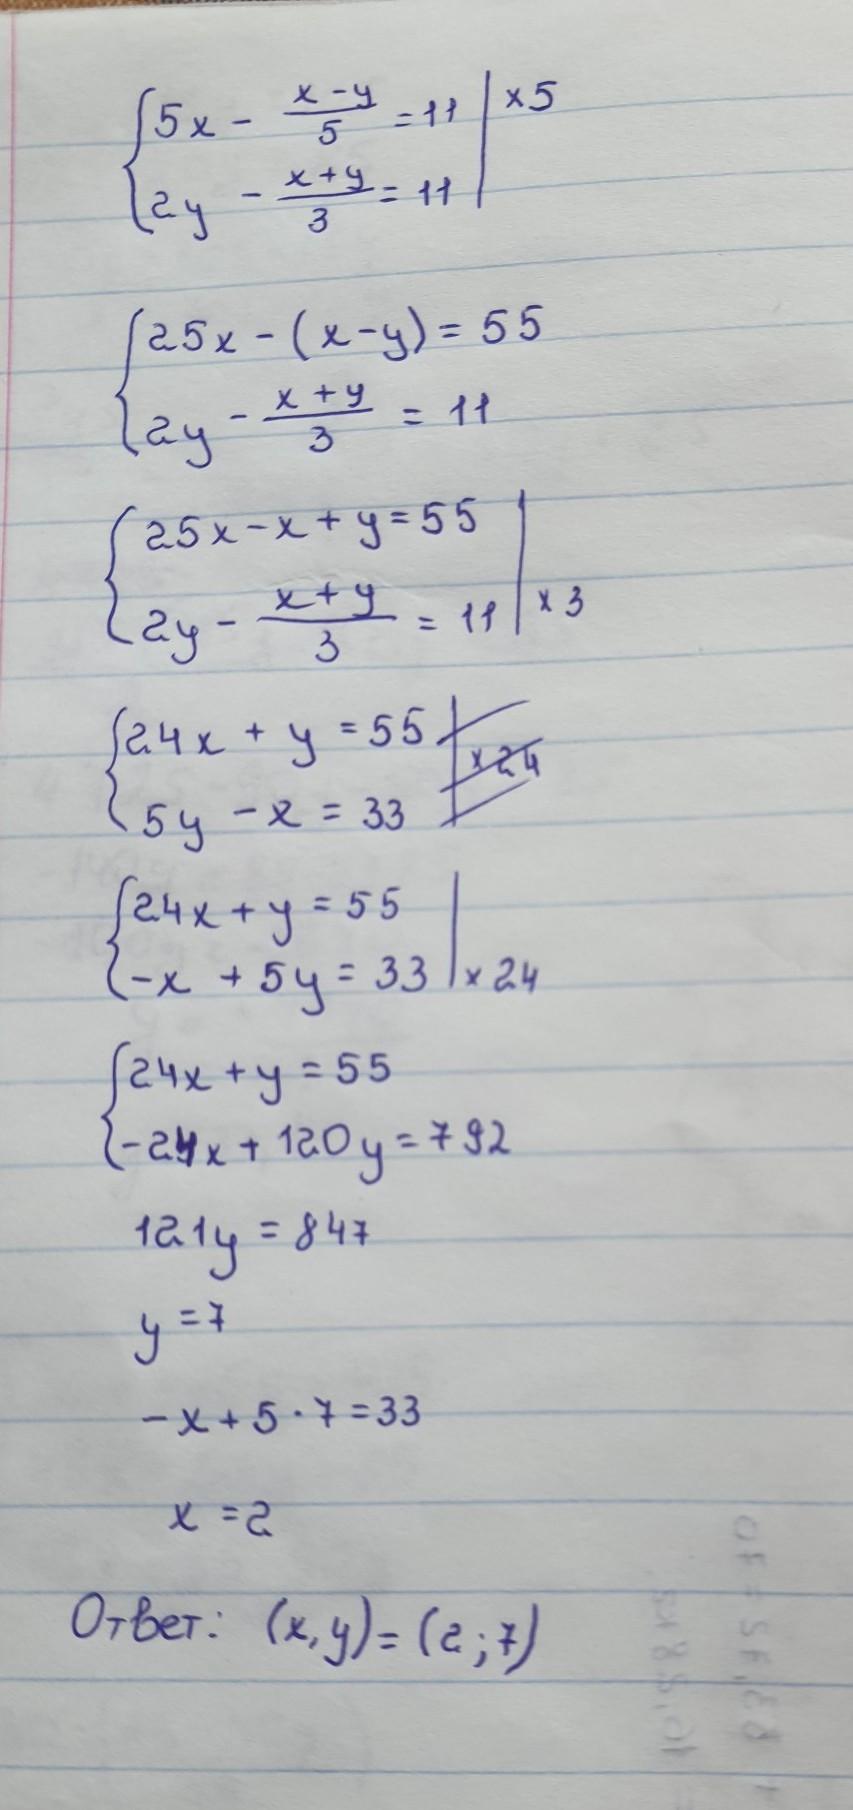 {5x - (x-y)/5 = 11 | x5
{2y - (x+y)/3 = 11 |
{25x - (x-y) = 55
{2y - (x+y)/3 = 11
{25x - x + y = 55 |
{2y - (x+y)/3 = 11 | x3
{24x + y = 55 |
{5y - x = 33 | x24
{24x + y = 55 |
{-x + 5y = 33 | x24
{24x + y = 55
{-24x + 120y = 792
121y = 847
y = 7
-x + 5 · 7 = 33
x = 2
Ответ: (x, y) = (2; 7)